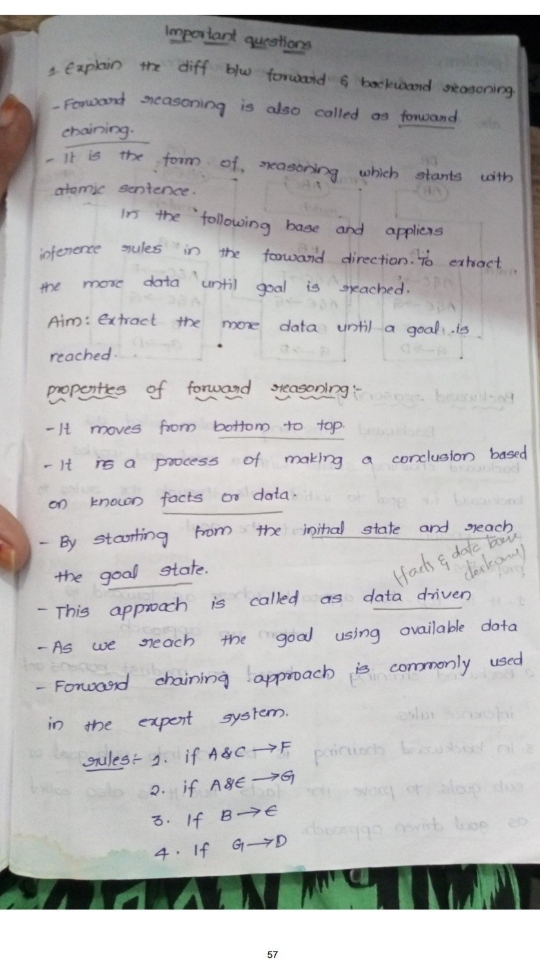 Important questions
1. Explain the diff b/w forward & backward reasoning
- Forward reasoning is also called as forward
chaining.
- It is the form of, reasoning which starts with
atomic sentence.
In the following base and appliers
inference rules in the forward direction. To extract
the more data until goal is reached.
Aim: Extract the more data until a goal is
reached.
properties of forward reasoning:-
- It moves from bottom to top.
- It is a process of making a conclusion based
on known facts or data.
- By starting from the initial state and reach
the goal state.
(facts & data
- This approach is called as data driven
- As we reach the goal using available data
- Forward chaining approach is commonly used
in the expert system.
rules:- 1. if A&C→F
2. if A&E→G
3. If B→E
4. If G→D
57